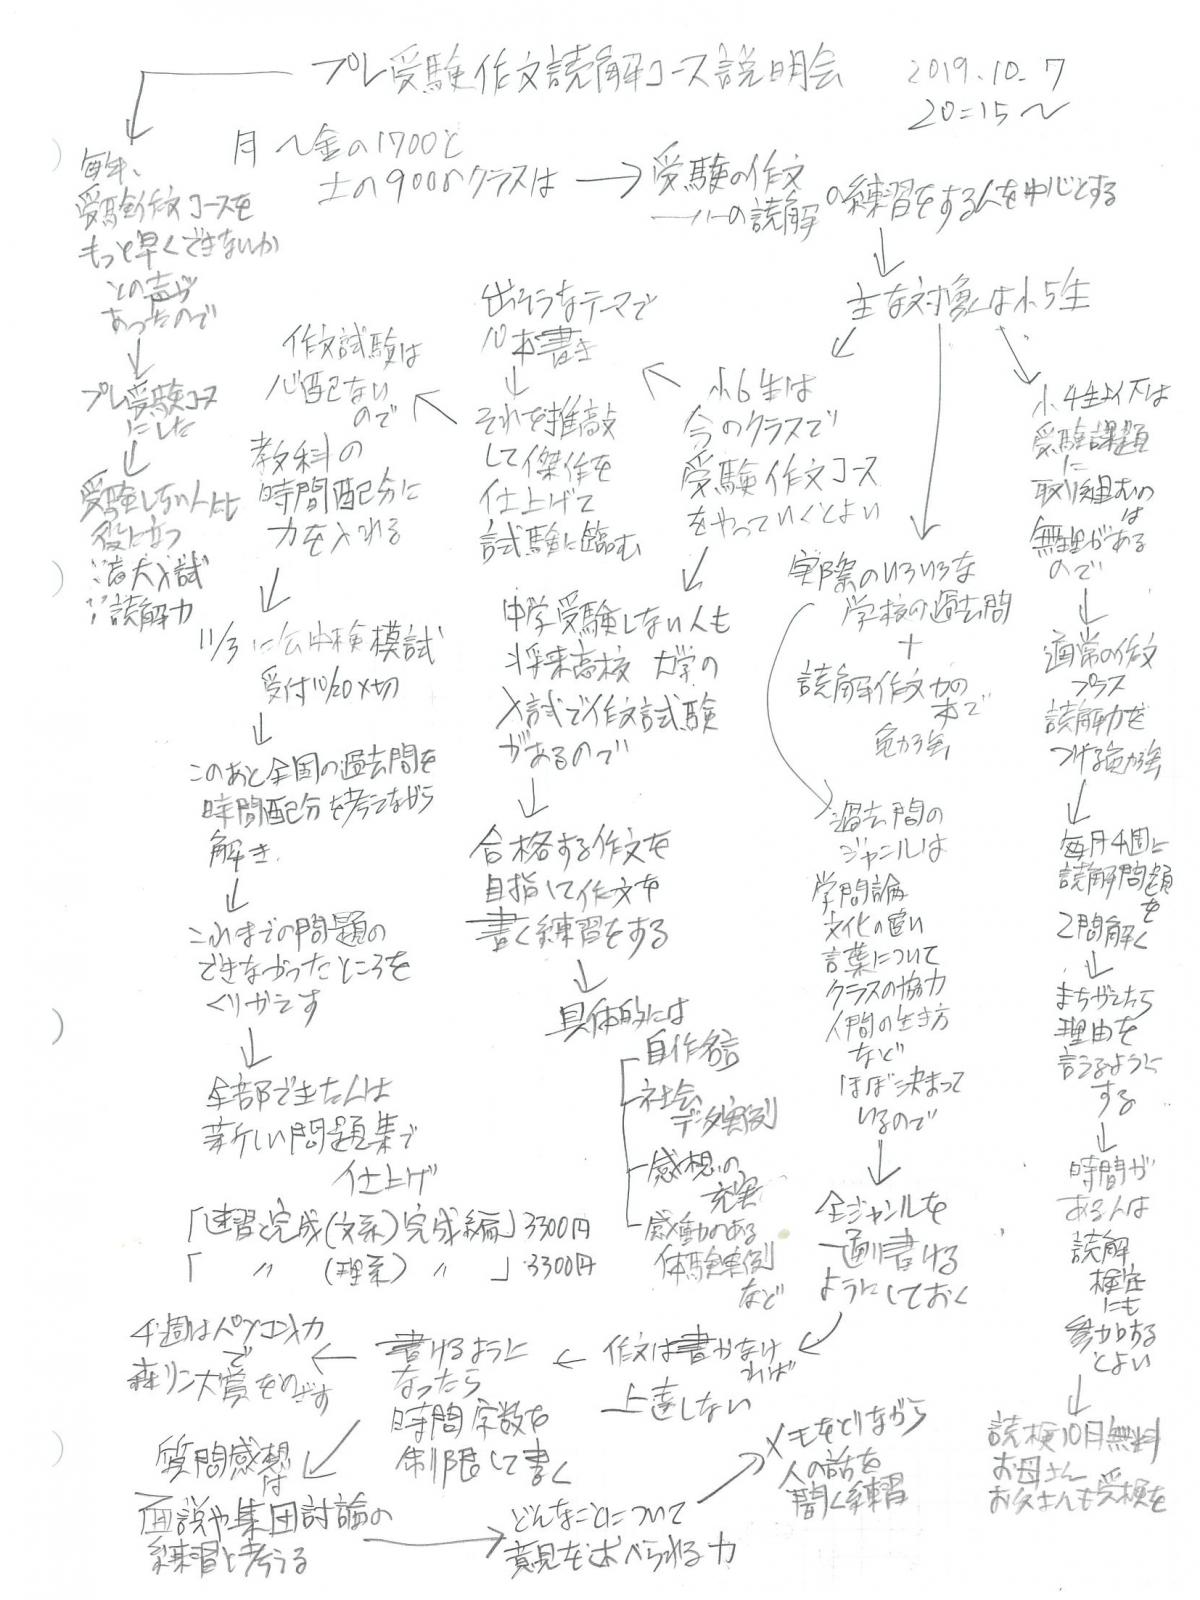 プレ受験作文読解コース説明会
2019.10.7
20:15〜
毎年、
受験作文コースを
もっと早くできないか
との声が
あったので
プレ受験コース
にした
受験しない人にも
役に立つ
∵大入試
∵読解力
月〜金の1700と
土の900のクラスは
受験の作文
〃の読解
の練習をする人を中心とする
主な対象は小5生
小6生は
今のクラスで
受験作文コース
をやっていくとよい
出そうなテーマで
10本書き
それを推敲
して傑作を
仕上げて
試験に臨む
作文試験は
心配ない
ので
教科の
時間配分に
力を入れる
11/3に公中検模試
受付10/20〆切
このあと全国の過去問を
時間配分を考えながら
解き
これまでの問題の
できなかったところを
くりかえす
全部できたんは
新しい問題集で
仕上げ
「速習と完成(文系)完成編」3300円
「 〃 (理系) 〃 」3300円
中学受験しない人も
将来高校 大学の
入試で作文試験
があるので
合格する作文を
目指して作文を
書く練習をする
具体的には
自作名言
社会
データ実例
感想の
充実
感動のある
体験実例
など
実際のいろいろな
学校の過去問
+
読解作文力の
本で
勉強
過去問の
ジャンルは
学問論
文化の違い
言葉について
クラスの協力
人間の生き方
など
ほぼ決まって
いるので
全ジャンルを
一通り書ける
ようにしておく
作文は書かなければ
上達しない
書けるように
なったら
時間 字数を
制限して書く
4週はパソコン入力
で
森リン大賞をめざす
質問感想
は
面談や集団討論の
練習と考える
どんなことについて
意見を述べられる力
メモをとりながら
人の話を
聞く練習
小4生以下は
受験課題
に
取り組むの
は
無理がある
ので
通常の作文
プラス
読解力を
つける勉強
毎月4週に
読解問題
を
2問解く
まちがえたら
理由を
言えるように
する
時間が
ある人は
読解
検定
にも
参加する
とよい
読検10月無料
お母さん
お父さんも受検を